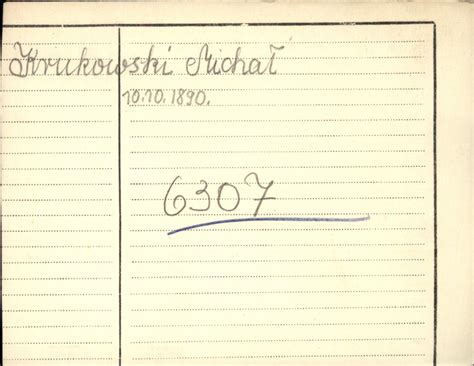 Krukowski Michał
10.10.1890.
6307